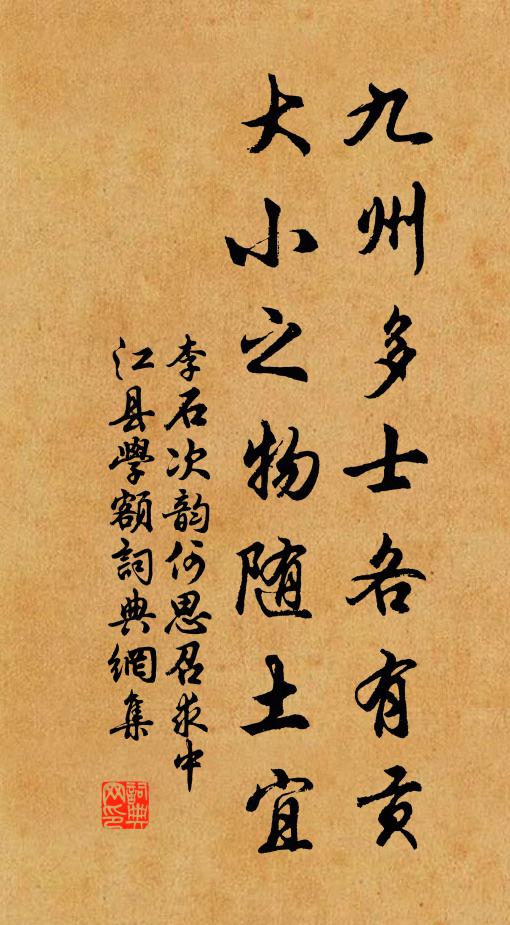 九州多士各有贡
大小之物随土宜
李石次韵何思召求中
江县学额詞典網集
詞典网印